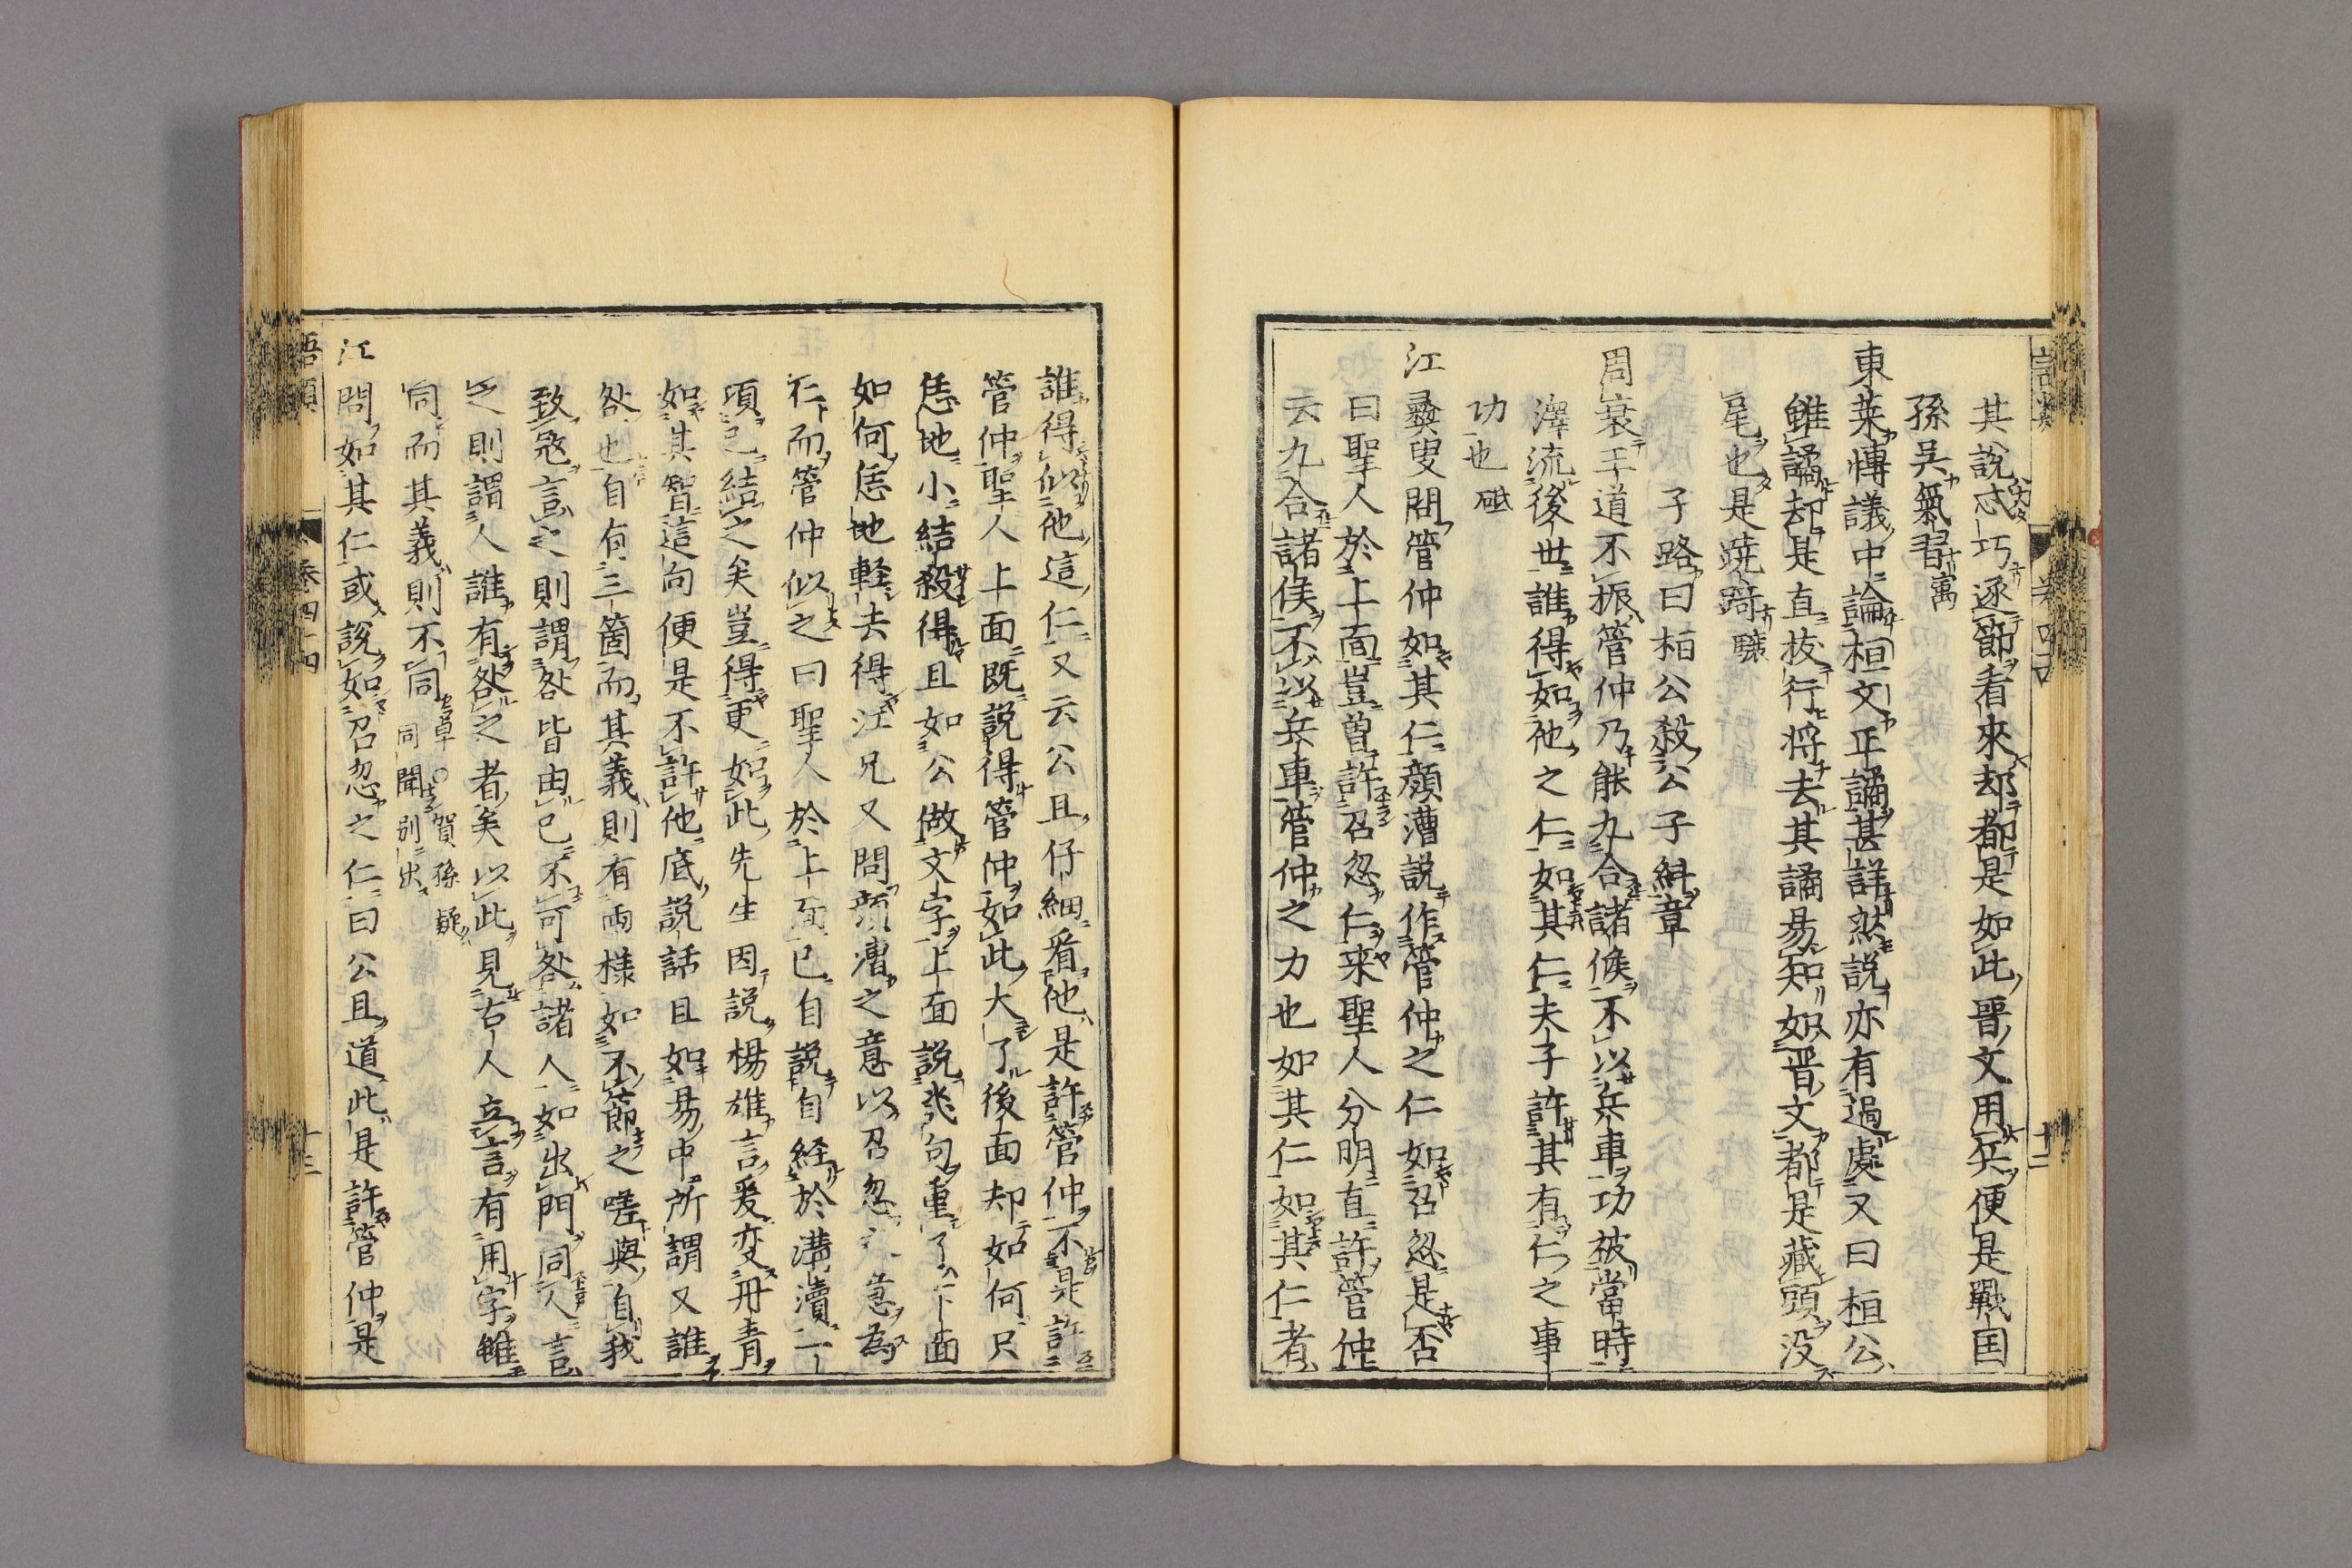 其說忒巧逐節看來却都是如此晋文用兵便是戰国
孫吳氣習寓
東萊博議中論桓文正譎甚詳然說亦有過處又曰桓公
雖譎却是直拔行将去其譎易知如晋文都是藏頭没
尾也是蹺踦驤
子路曰桓公殺公子糾章
周衰王道不振管仲乃能九合諸候不以兵車功被當時
澤流後世誰得如他之仁如其仁夫子許其有仁之事
功也䃢
江彝叟問管仲如其仁顔漕説作管仲之仁如召忽是否
曰聖人於上面豈曽許召忽仁来聖人分明直許管仲
云九合諸侯不以兵車管仲之力也如其仁如其仁者
語類
卷四十四
十二
誰得似他這仁又云公且仔細看他是許管仲不是許
管仲聖人上面既説得管仲如此大了後面却如何只
恁地小結殺得且如公做文字上面説兆句重了下面
如何恁地軽去得江兄又問顔漕之意以召忽之急為
仁而管仲似之曰聖人於上面已自説自経於溝瀆一
項已結之矣豈得更如此先生因説楊雄言爰変丹青
如其智這向便是不許他底説話且如易中所謂又誰
咎也自有三箇而其義則有両様如不節之嗟與自我
致㓂言之則謂咎皆由己不可咎諸人如出門同人言
之則謂人誰有咎之者矣以此見古人立言有用字雖
同而其義則不同卓○賀孫疑
同聞別出
江問如其仁或説如召忽之仁曰公且道此是許管仲是
語類
卷四十四
十三